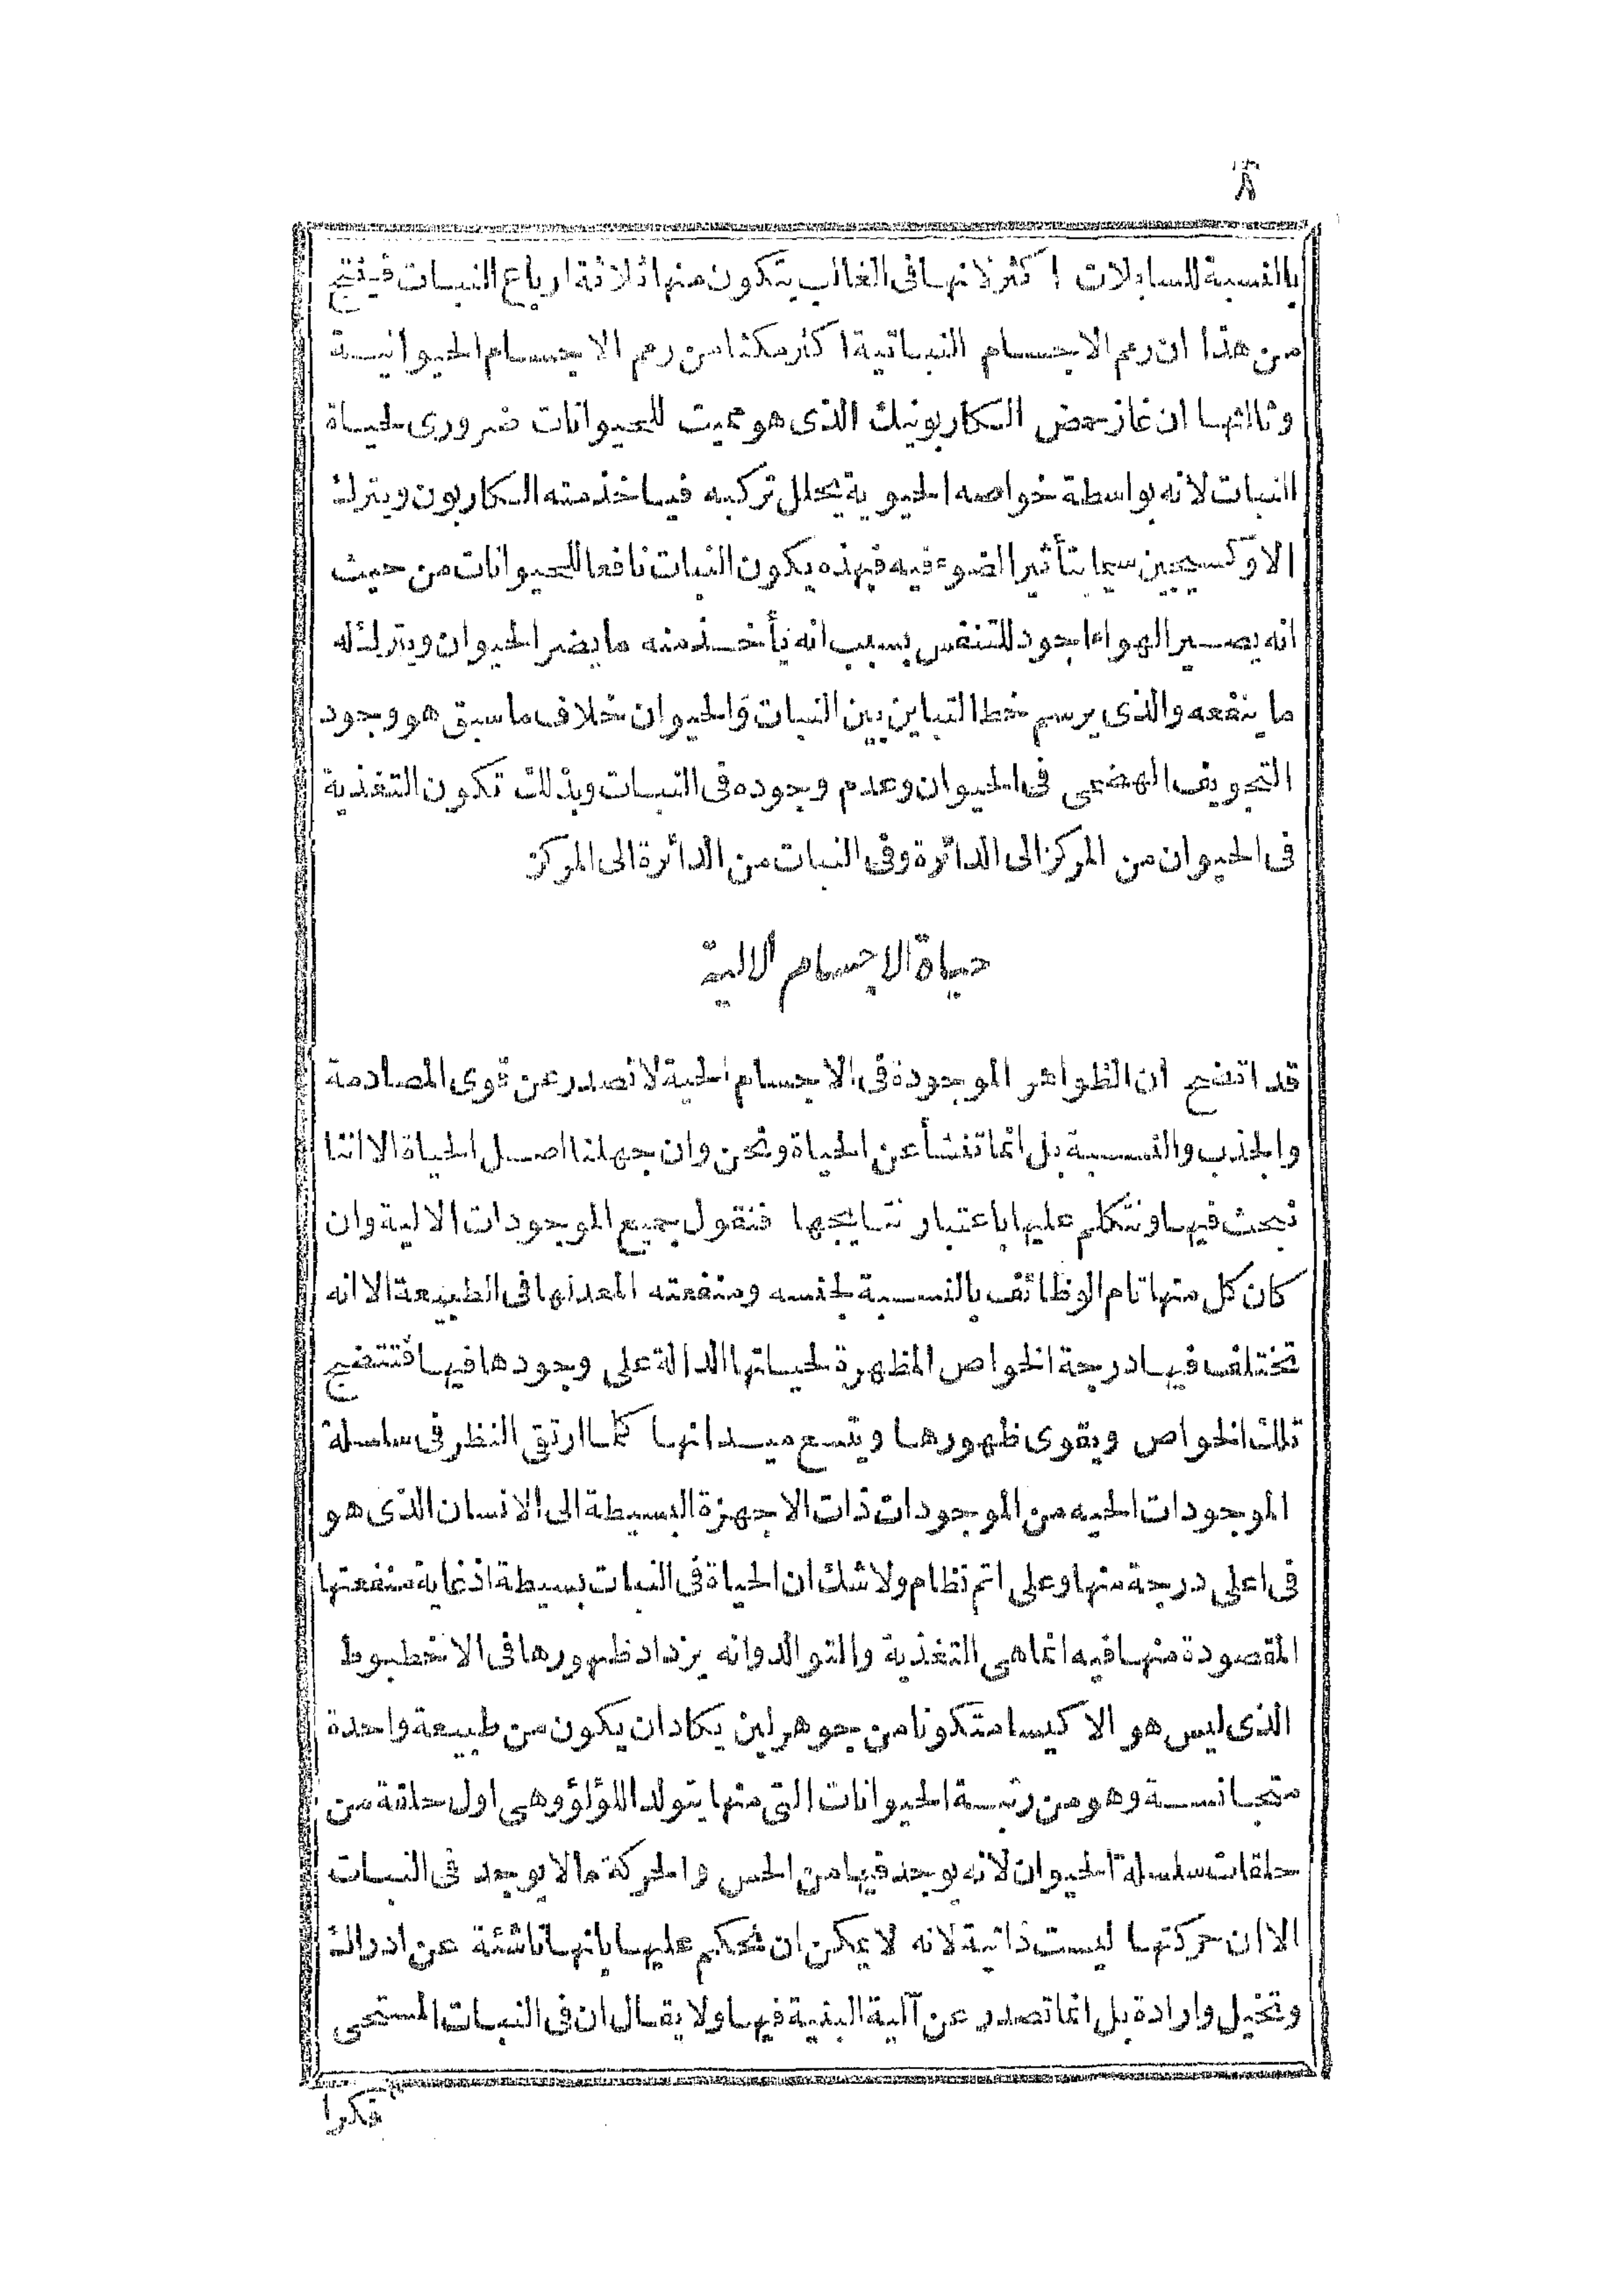 ٨
بالنسبة للسايلات اكثر لانها فى الغالب يتكون منها ثلاثة ارباع النبات فينتج
من هذا ان رمم الاجسام النباتية اكثر مكثا من رمم الاجسام الحيوانية
وثالثها ان غاز حمض الكاربونيك الذى هو مميت للحيوانات ضرورى لحياة
النبات لانه بواسطة خواصه الحيوية يحلل تركبه فياخذ منه الكاربون ويترك
الاوكسيجين سيما بتأثير الضوء فيه فبهذه يكون النبات نافعا للحيوانات من حيث
انه يصير الهواء اجود للتنفس بسبب انه يأخذ منه ما يضر الحيوان ويترك له
ما ينفعه والذى يرسم خط التباين بين النبات والحيوان خلاف ما سبق هو وجود
التجويف الهضمى فى الحيوان وعدم وجوده فى النبات وبذلك تكون التغذية
فى الحيوان من المركز الى الدائرة وفى النبات من الدائرة الى المركز
حياة الاجسام الالية
قد اتضح ان الظواهر الموجودة فى الاجسام الحية لا تصدر عن قوى المصادمة
والجذب والنسبة بل انما تنشأ عن الحياة ونحن وان جهلنا اصل الحياة الا اننا
نبحث فيها ونتكلم عليها باعتبار نتايجها فنقول جميع الموجودات الالية وان
كان كل منها تام الوظائف بالنسبة لجنسه ومنفعته المعد لها فى الطبيعة الا انه
تختلف فيها درجة الخواص المظهرة لحياتها الدالة على وجودها فيها فتتضح
تلك الخواص ويقوى ظهورها ويتسع ميدانها كلما ارتقى النظر فى سلسلة
الموجودات الحيه من الموجودات ذات الاجهزة البسيطة الى الانسان الذى هو
فى اعلى درجة منها وعلى اتم نظام ولا شك ان الحياة فى النبات بسيطة اذ غاية منفعتها
المقصودة منها فيه انما هى التغذية والتوالد وانه يزداد ظهورها فى الاخطبوط
الذى ليس هو الا كيسا متكونا من جوهر لين يكاد ان يكون من طبيعة واحدة
متجانسة وهو من رتبة الحيوانات التى منها يتولد اللؤلؤ وهى اول حلقة من
حلقات سلسلة الحيوان لانه يوجد فيها من الحس والحركة ما لا يوجد فى النبات
الا ان حركتها ليست ذاتية لانه لا يمكن ان نحكم عليها بانها ناشئة عن ادراك
وتخيل وارادة بل انما تصدر عن آلية البنية فيها ولا يقال ان فى النبات المستحى